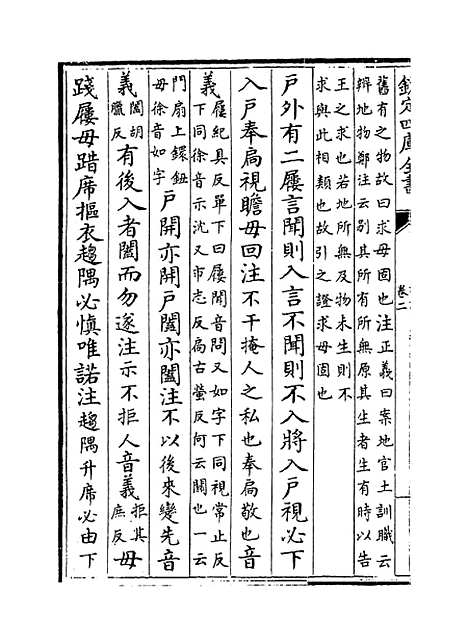 欽定四庫全書
卷二
舊有之物故曰求毋固也注正義曰案地官土訓職云
辯地物鄭注云别其所有所無原其生者生有時以告
王之求也若地所無及物未生則不
求與此相類也故引之證求毋固也
戶外有二屨言聞則入言不聞則不入將入戶視必下
入戶奉扃視瞻毋回注不干掩人之私也奉扃敬也音
義屨紀具反單下曰屨聞音問又如字下同視常止反
下同徐音示沈又市志反扃古螢反何云關也一云
門扇上鐶鈕
毋徐音如字戶開亦開戶闔亦闔注不以後來變先音
義闔胡臘反有後入者闔而勿遂注示不拒人音義拒其庶反毋
踐屨毋踖席摳衣趨隅必慎唯諾注趨隅升席必由下